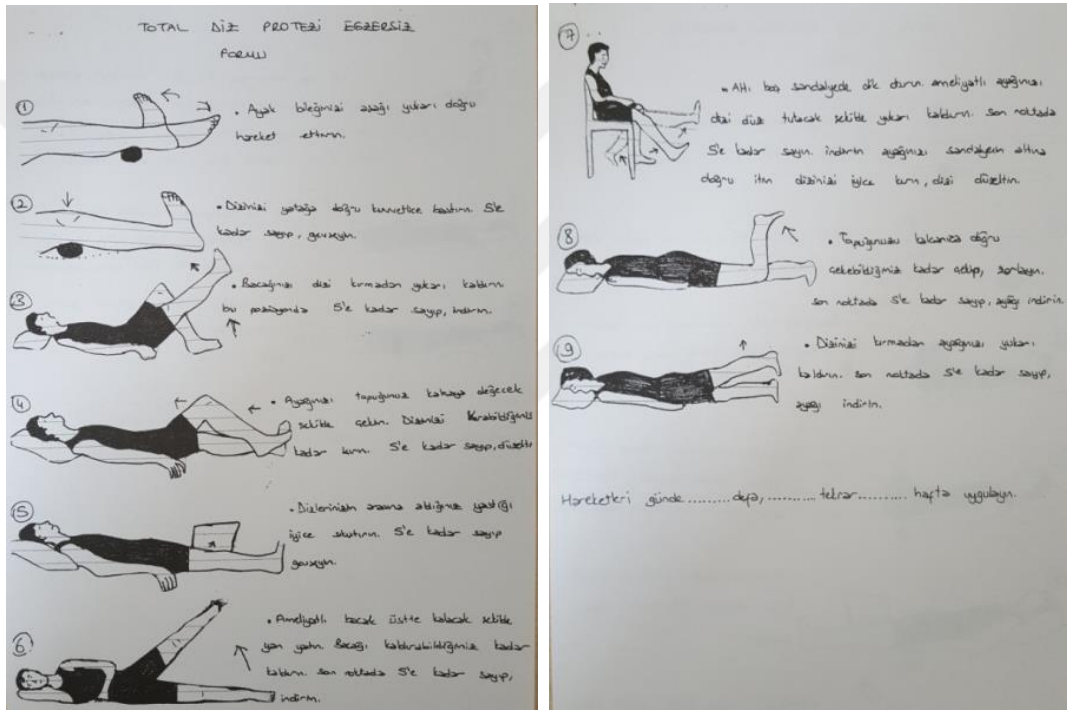 TOTAL DİZ PROTEZİ EGZERSİZ
FORMU
1
• Ayak bileğinizi aşağı yukarı doğru
hareket ettirin.
2
• Dizinizi yatağa doğru kuvvetlice bastırın. 5'e
kadar sayıp, gevşeyin.
3
• Bacağınızı dizi kırmadan yukarı kaldırın
bu pozisyonda 5'e kadar sayıp, indirin.
4
• Ayağınızı topuğunuz kalçaya değecek
şekilde çekin. Dizinizi kırabildiğiniz
kadar kırın. 5'e kadar sayıp, düzeltin
5
• Dizlerinizin arasına aldığınız yastığı
iyice sıkıştırın. 5'e kadar sayıp
gevşeyin.
6
• Ameliyatlı bacak üstte kalacak şekilde
yan yatın. Bacağı kaldırabildiğiniz kadar
kaldırın. son noktada 5'e kadar sayıp,
indirin.
7
• Altı boş sandalyede dik durun. ameliyatlı ayağınızı
dizi düz tutacak şekilde yukarı kaldırın. son noktada
5'e kadar sayın. indirin ayağınızı sandalyenin altına
doğru itin dizinizi iyice kırın, dizi düzeltin.
8
• Topuğunuzu kalçanıza doğru
çekebildiğiniz kadar çekip, zorlayın.
son noktada 5'e kadar sayıp, ayağı indirin.
9
• Dizinizi kırmadan ayağınızı yukarı
kaldırın. son noktada 5'e kadar sayıp,
ayağı indirin.
Hareketleri günde ......... defa, .......... tekrar ......... hafta uygulayın.